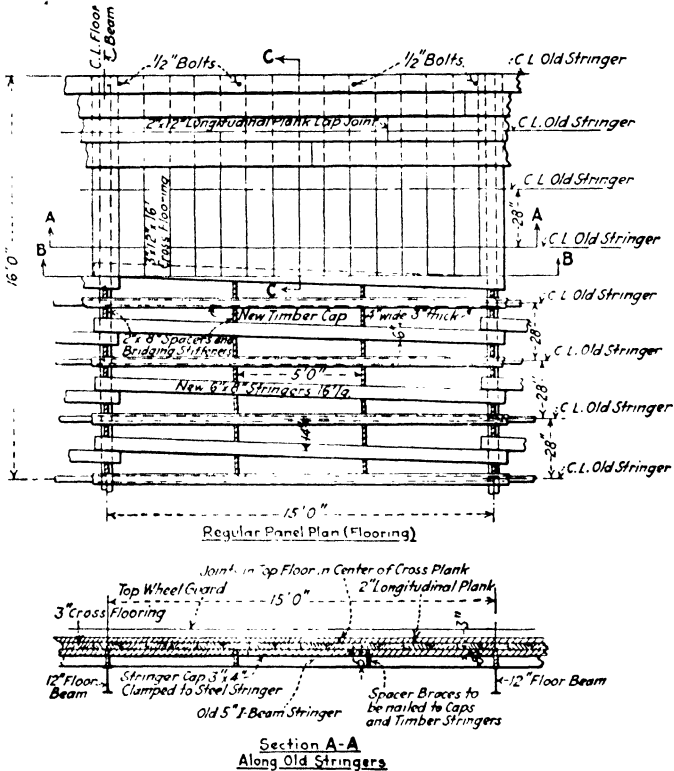 C.L. Floor
Beam
1/2" Bolts
C
1/2" Bolts
C L Old Stringer
2"x12" Longitudinal Plank Lap Joint
C L Old Stringer
C L Old Stringer
3"x12"x16'
Cross Flooring
28"
A
A
C L Old Stringer
B
B
16'0"
C
C L Old Stringer
New Timber Cap
4" wide 3" thick
2"x 8" Spacers and
Bridging Stiffners
6"
28"
C L Old Stringer
5'0"
New 6"x8" Stringers 16' lg.
28"
C.L. Old Stringer
14"
28"
C.L. Old Stringer
15'0"
Regular Panel Plan (Flooring)
Joints in Top Floor in Center of Cross Plank
Top Wheel Guard
2" Longitudinal Plank
15'0"
3" Cross Flooring
3"
8"
12" Floor
Beam
Stringer Cap 3"x 4"
Clamped to Steel Stringer
Old 5" I-Beam Stringer
Spacer Braces to
be nailed to Caps
and Timber Stringers
12" Floor Beam
Section A-A
Along Old Stringers